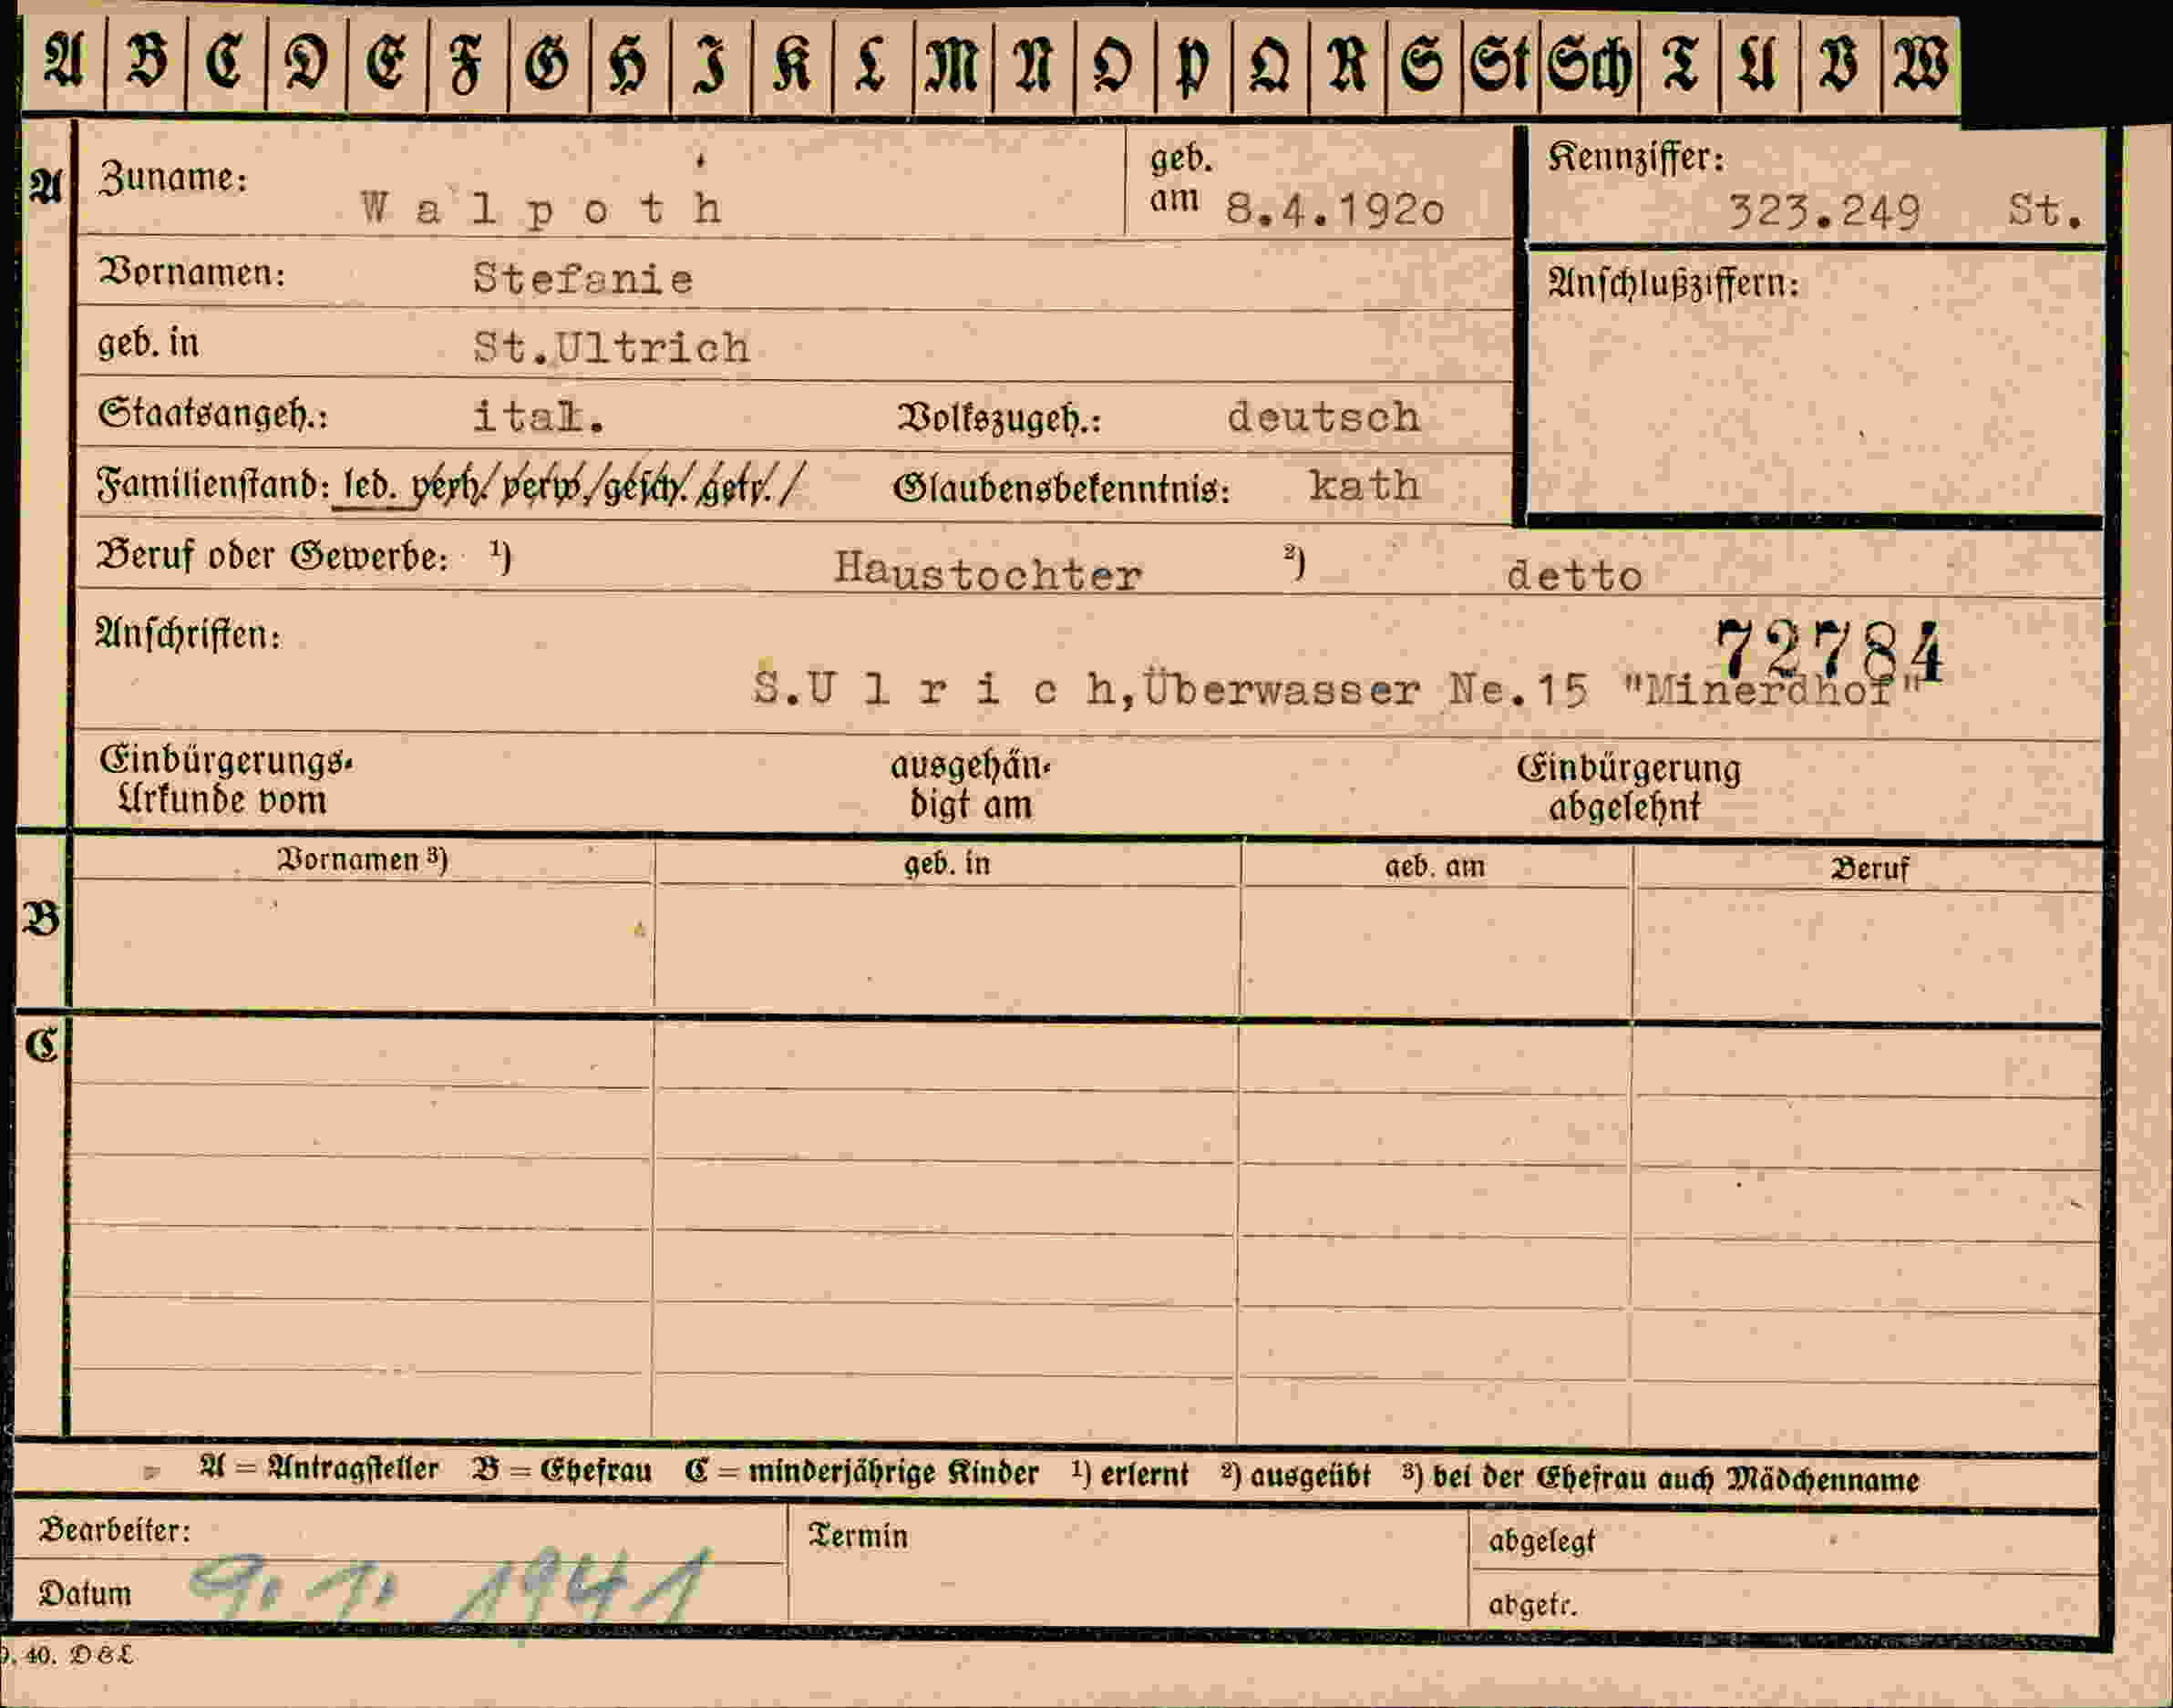 A B C D E F G H I K L M N O P Q R S St Sch T U V W
A Zuname: Walpoth geb. am 8.4.192o Kennziffer: 323.249 St.
Vornamen: Stefanie Anschlußziffern:
geb. in St.Ultrich
Staatsangeh.: ital. Volkszugeh.: deutsch
Familienstand: led. verh./verw./gesch./getr./ Glaubensbekenntnis: kath
Beruf oder Gewerbe: ¹) Haustochter ²) detto
Anschriften: 72784
S.Ulrich,Überwasser Ne.15 "Minerdhof"
Einbürgerungs- ausgehän- Einbürgerung
Urkunde vom digt am abgelehnt
Vornamen ³) geb. in geb. am Beruf
B
C
A = Antragsteller B = Ehefrau C = minderjährige Kinder ¹) erlernt ²) ausgeübt ³) bei der Ehefrau auch Mädchenname
Bearbeiter: Termin abgelegt
Datum 9. 1. 1941 abgetr.
40. D & L